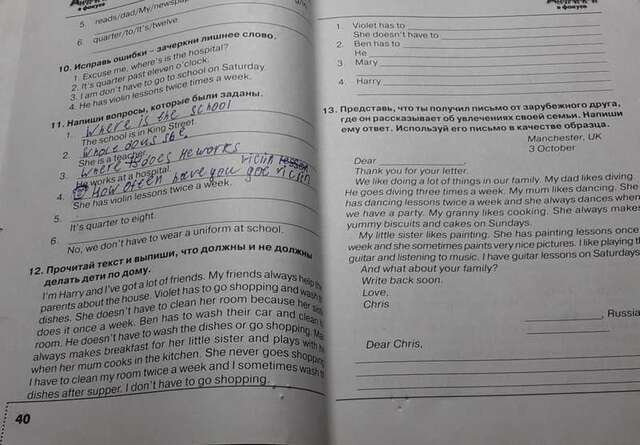 в фокусе
5. reads/dad/My/newspap
6. quarter/to/It's/twelve.
10. Исправь ошибки – зачеркни лишнее слово.
1. Excuse me, where's is the hospital?
2. It's quarter past eleven o'clock.
3. I am don't have to go to school on Saturday.
4. He has violin lessons twice times a week.
11. Напиши вопросы, которые были заданы.
1. Where is the school
The school is in King Street.
2.
She is a teacher.
3. Where does He works
He works at a hospital.
4. How often have you
She has violin lessons twice a week.
5.
It's quarter to eight.
6.
No, we don't have to wear a uniform at school.
12. Прочитай текст и выпиши, что должны и не должны
делать дети по дому.
I'm Harry and I've got a lot of friends. My friends always help the
parents about the house. Violet has to go shopping and wash
dishes. She doesn't have to clean her room because her sis
does it once a week. Ben has to wash their car and clean
room. He doesn't have to wash the dishes or go shopping. Mary
always makes breakfast for her little sister and plays with
when her mum cooks in the kitchen. She never goes shopping
I have to clean my room twice a week and I sometimes wash
dishes after supper. I don't have to go shopping.
40
в фокусе
1. Violet has to
She doesn't have to
2. Ben has to
He
3. Mary
4. Harry
13. Представь, что ты получил письмо от зарубежного друга,
где он рассказывает об увлечениях своей семьи. Напиши
ему ответ. Используй его письмо в качестве образца.
Manchester, UK
3 October
Dear
Thank you for your letter.
We like doing a lot of things in our family. My dad likes diving.
He goes diving three times a week. My mum likes dancing. She
has dancing lessons twice a week and she always dances when
we have a party. My granny likes cooking. She always makes
yummy biscuits and cakes on Sundays.
My little sister likes painting. She has painting lessons once
week and she sometimes paints very nice pictures. I like playing the
guitar and listening to music. I have guitar lessons on Saturdays
And what about your family?
Write back soon.
Love,
Chris
, Russia
Dear Chris,